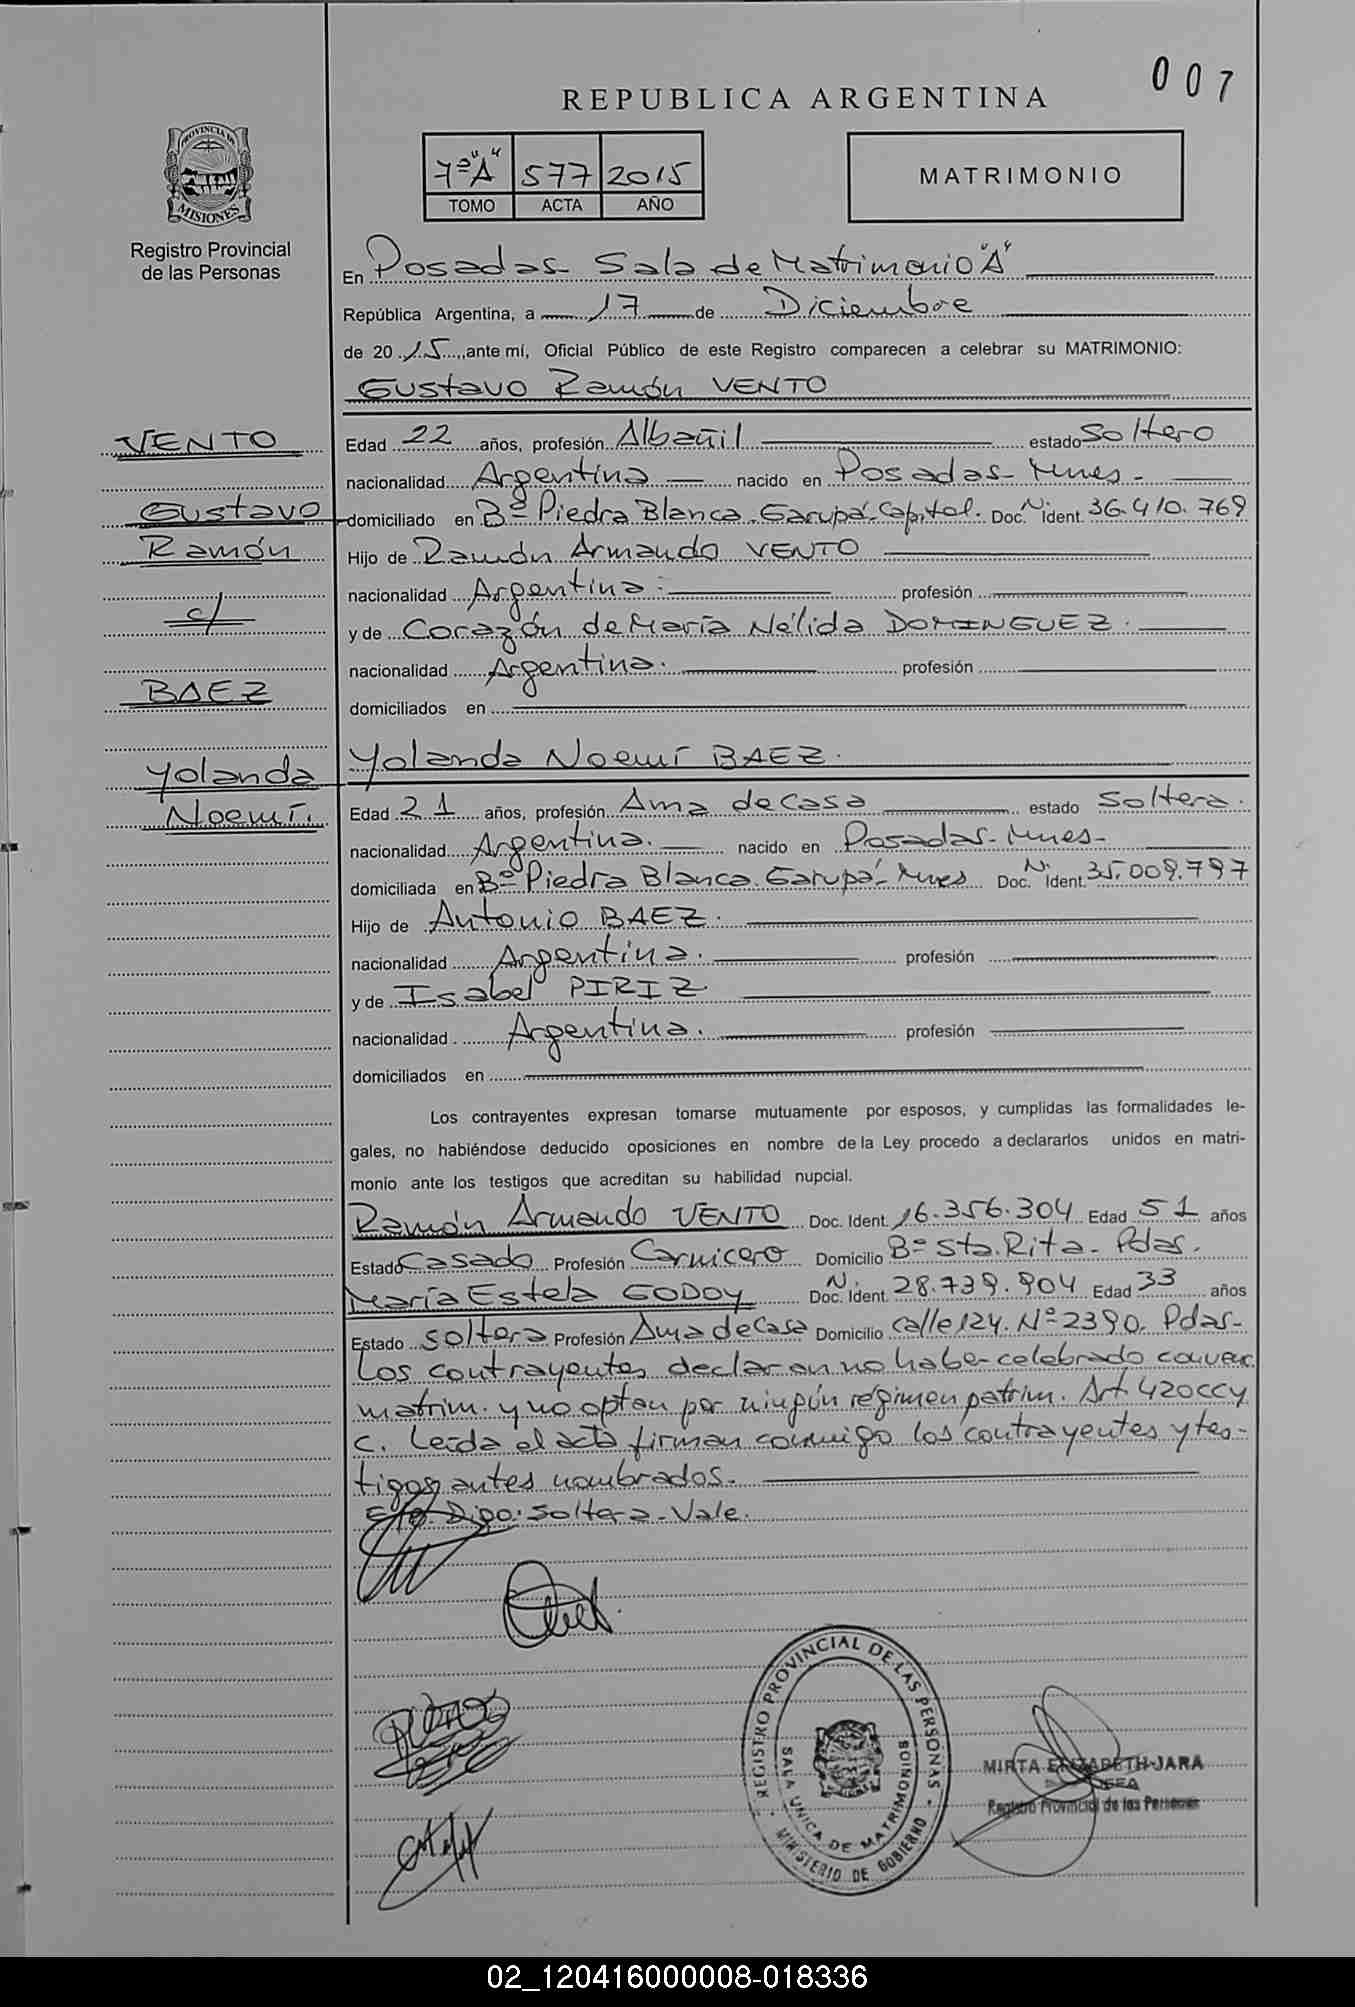 007
REPUBLICA ARGENTINA
PROVINCIA DE
MISIONES
Registro Provincial
de las Personas
7º "A" 577 2015
TOMO ACTA AÑO
MATRIMONIO
En Posadas- Sala de Matrimonio "A"
República Argentina, a 17 de Diciembre
de 2015, ante mí, Oficial Público de este Registro comparecen a celebrar su MATRIMONIO:
Gustavo Ramón VENTO
VENTO
Gustavo
Ramón
c/
BAEZ
Yolanda
Noemí.
Edad 22 años, profesión Albañil estado Soltero
nacionalidad Argentina nacido en Posadas- Mnes-
domiciliado en Bº Piedra Blanca. Garupá-Capital. Doc. N. ident. 36.410.769
Hijo de Ramón Armando VENTO
nacionalidad Argentina profesión
y de Corazón de María Nélida DOMINGUEZ.
nacionalidad Argentina. profesión
domiciliados en
Yolanda Noemí BAEZ.
Edad 21 años, profesión Ama de Casa estado Soltera.
nacionalidad Argentina. nacido en Posadas- Mnes-
domiciliada en Bº Piedra Blanca. Garupá- Mnes Doc. N. Ident. 35.009.797
Hijo de Antonio BAEZ.
nacionalidad Argentina. profesión
y de Isabel PIRIZ.
nacionalidad Argentina. profesión
domiciliados en
Los contrayentes expresan tomarse mutuamente por esposos, y cumplidas las formalidades le-
gales, no habiéndose deducido oposiciones en nombre de la Ley procedo a declararlos unidos en matri-
monio ante los testigos que acreditan su habilidad nupcial.
Ramón Armando VENTO Doc. Ident. 16.356.304 Edad 51 años
Estado Casado Profesión Carnicero Domicilio Bº Sta. Rita- Pdas.
María Estela GODOY Doc. N. Ident. 28.739.904 Edad 33 años
Estado soltera Profesión Ama de Casa Domicilio calle 124. Nº 2390. Pdas-
Los contrayentes declaran no haber celebrado conven.
matrim. y no optan por ningún régimen patrim. Art. 420 CCy
C. Leída el acta firman conmigo los contrayentes y tes-
tigos antes nombrados.
Digo: Soltera- Vale.
REGISTRO PROVINCIAL DE LAS PERSONAS
SALA UNICA DE MATRIMONIOS
MINISTERIO DE GOBIERNO
MIRTA ELIZABETH JARA
Registro Provincial de las Personas
02_120416000008-018336